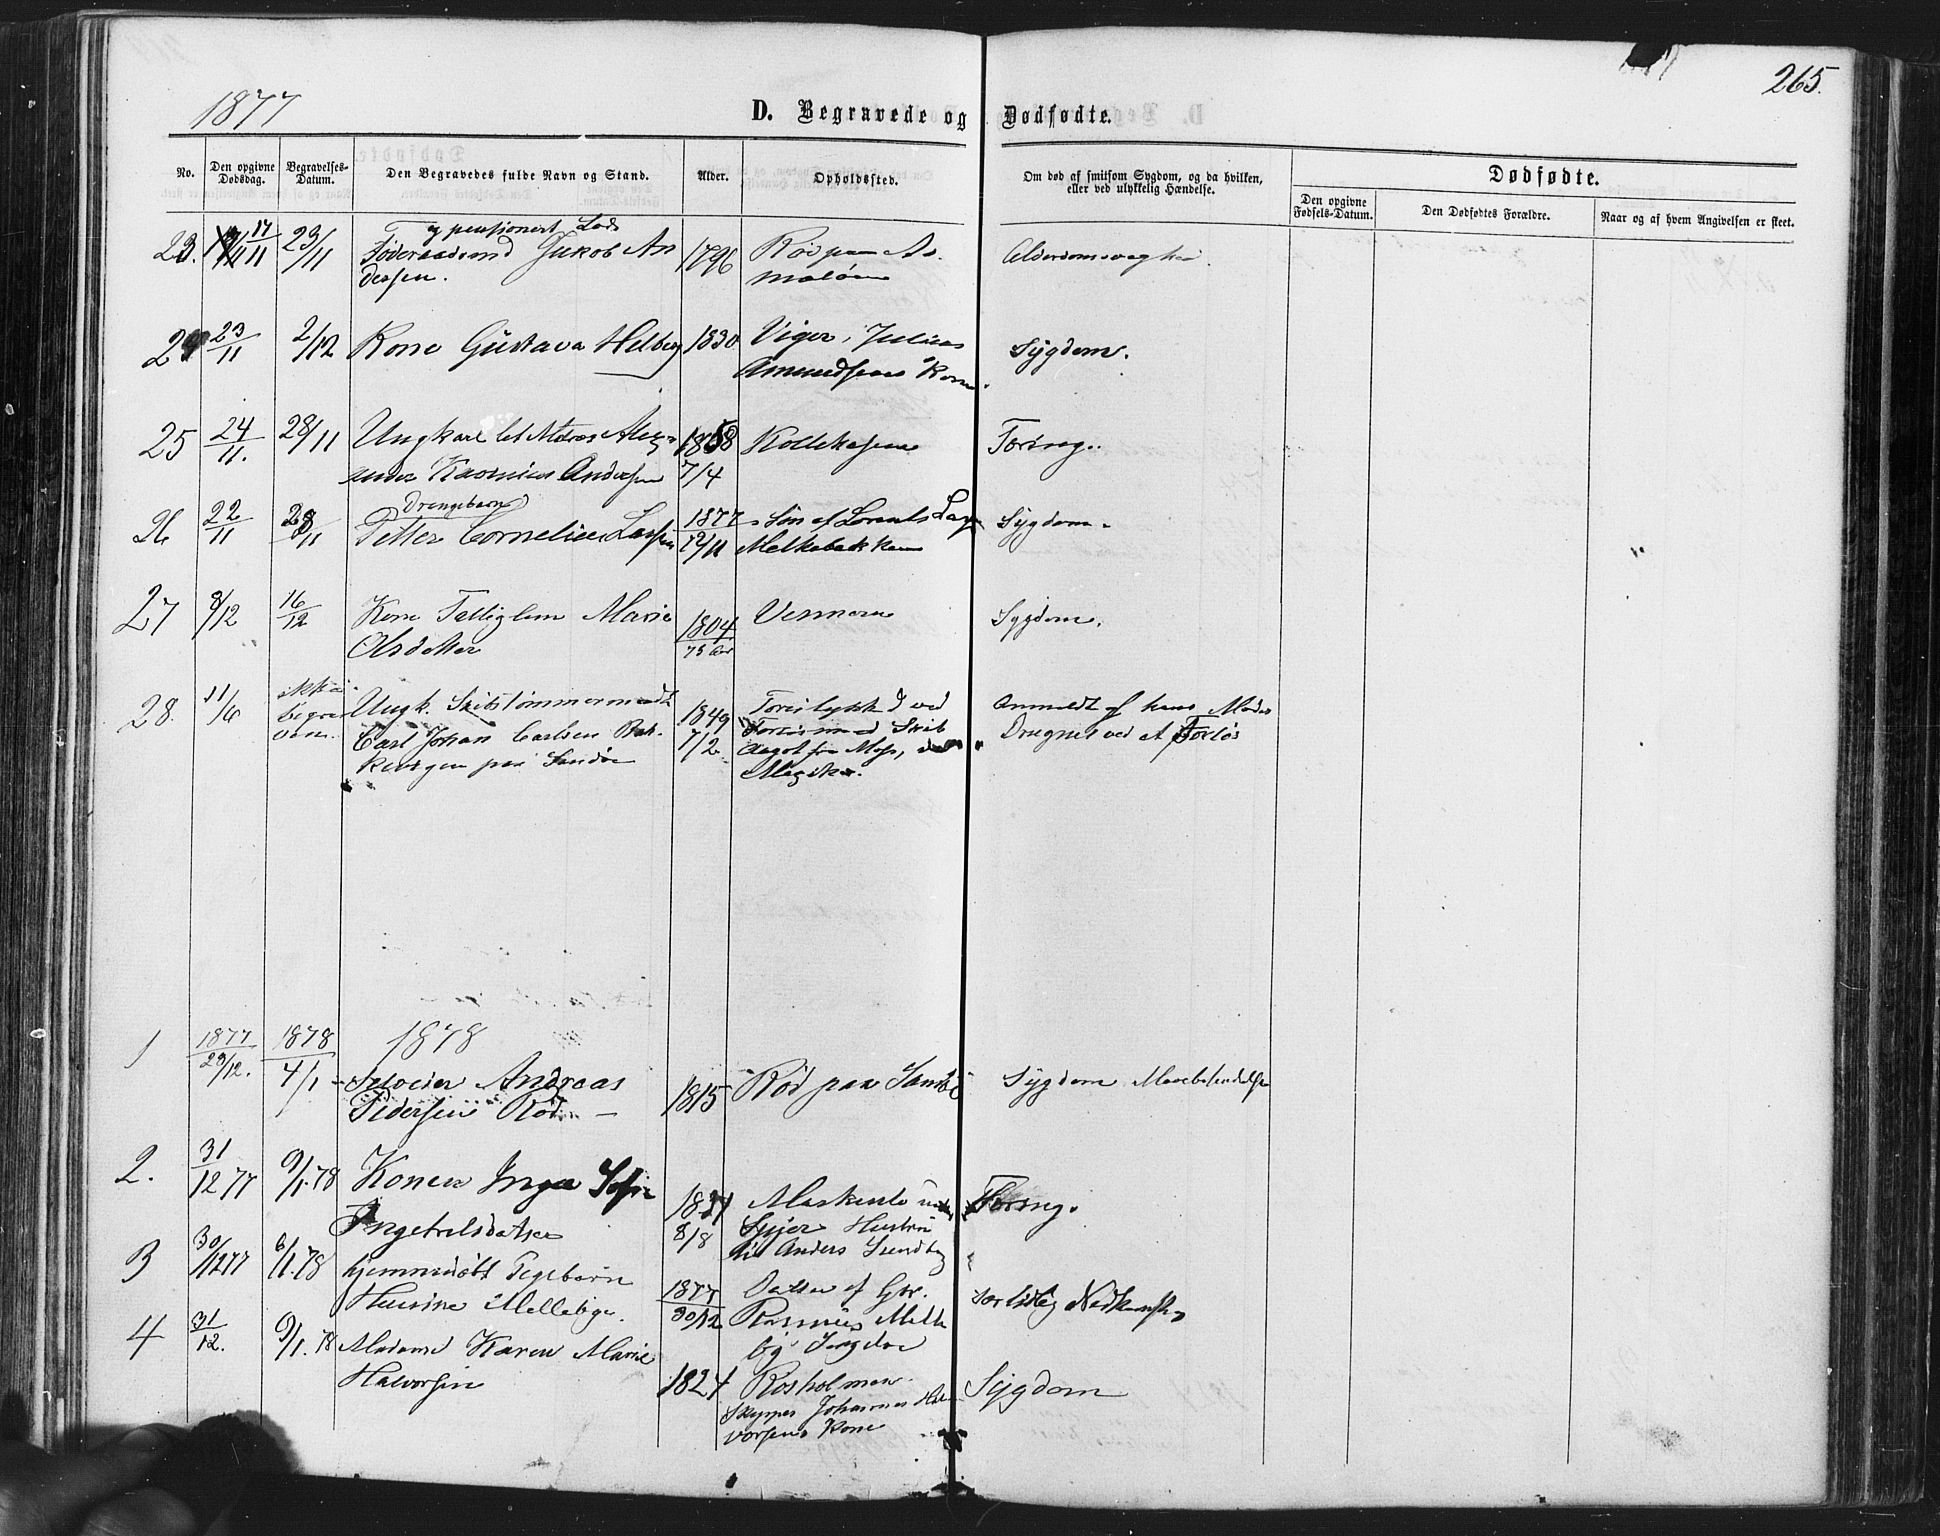 1877
265.
D. Begravede og Dødfødte.
No.
Den opgivne Dødsdag.
Begravelses-Datum.
Den Begravedes fulde Navn og Stand.
Alder.
Opholdssted.
Om død af smitsom Sygdom, og da hvilken,
eller ved ulykkelig Hændelse.
Dødfødte.
Den opgivne Fødsels-Datum.
Den Dødfødtes Forældre.
Naar og af hvem Angivelsen er skeet.
23. 17/11 23/11
og pensioneret Lods
Føderaadsmand Jakob An
dersen.
1796
Rød paa As
maløen
Alderdomssvaghed.
24 23/11 2/12 Kone Gustava Helberg 1830
Viger, Julius
Amundsens Kone.
Sygdom.
25 24/11. 28/11
Ungkarl let Matros Alex-
ander Rasmus Andersen
1858
7/4
Kollekasene
Tæring.
26 22/11 28/11
Drengebarn
Petter Cornelius Larsen
1877
12/11
Søn af Lorents Lars
Melkebakken
Sygdom.
27 8/12 16/12
Kone Marie
Olsdatter
1804
73 Aar
Vennern
Sygdom.
28. 11/6
ikke
begra
ven.
Ungk. Skibstømmermand
Carl Johan Carlsen Bak-
ken paa Sandø
1849
7/2
Forulykket ved
Skib
Aagot fra Moss,
Mexiko.
Anmeldt af hans Moder
Druknet ved at Forlis
1878
1 1877 29/12. 1878 4/1
Selveier Andreas
Pedersen Rød
1815
Rød paa Sandø
Sygdom, Mavebetændelse
2. 31/12 77 9/1.78
Konen Inger Sofie
Ingebretsdatter
1827
8/8
Maskerlo under
Spjer Hustru
til Anders Sundby
Tæring.
3 30/12 77 6/1.78
hjemmedøbt Pigebarn
Hansine Mellebye.
1877
30/12
Datter af Gbr.
Rasmus Melle
by
Nedkomst
4 31/12. 9/1.78
Madame Karen Marie
Halvorsen
1824
Rosholmen.
Skipper Johannes Hal
vorsens Kone
Sygdom